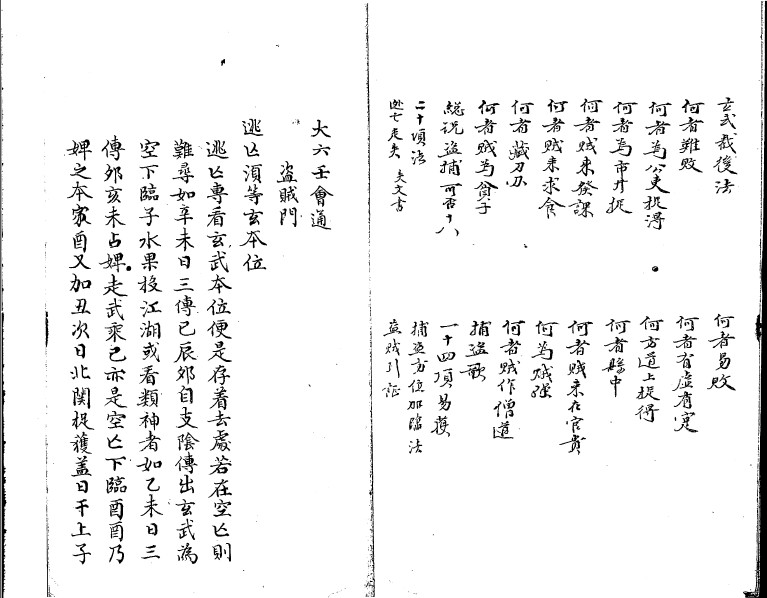 玄武裁後法
何者難敗
何者為公吏捉得
何者為市井捉
何者賊來發課
何者賊來求食
何者藏刀办
何者賊為貧子
總説盜捕可否十八
二十項法
逃亡走失 失文書
何者易敗
何者有虛有寔
何方道上捉得
何者賜中
何者賊來在官貴
何為賊强
何者賊作僧道
捕盜歌
一十四項易獲
捕盜方位加臨法
盜賊引証
大六壬會通
盜賊門
逃亡須等玄本位
逃亡專看玄武本位便是存着去處若在空亡則
難尋如辛未日三傳巳辰夘自支陰傳出玄武為
空下臨子水果投江湖或看類神者如乙未日三
傳夘亥未占婢走武乘巳亦是空亡下臨酉酉乃
婢之本家酉又加丑次日北関捉獲盖日干上子